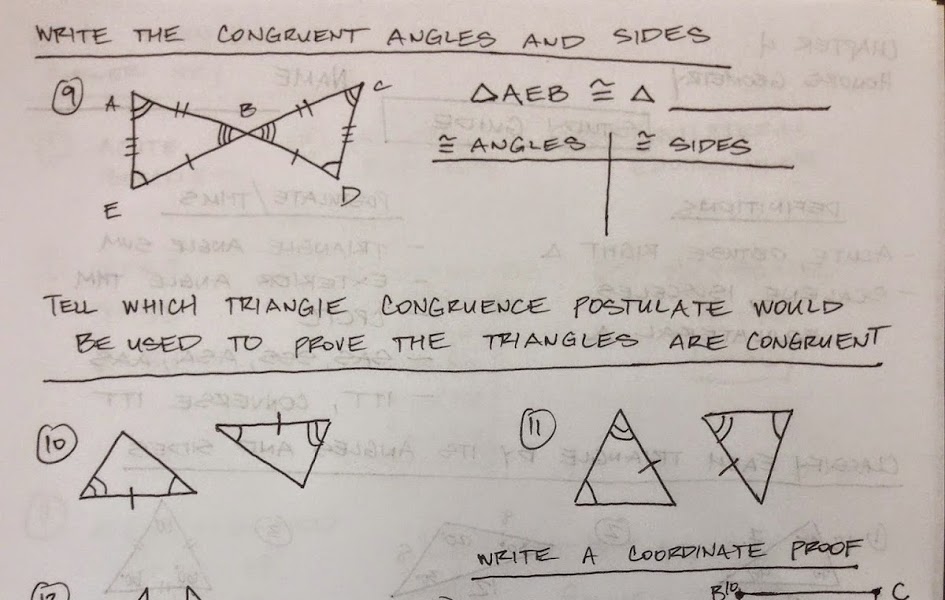 WRITE THE CONGRUENT ANGLES AND SIDES
9 A B C E D
△AEB ≅ △ ________
≅ ANGLES | ≅ SIDES
TELL WHICH TRIANGLE CONGRUENCE POSTULATE WOULD
BE USED TO PROVE THE TRIANGLES ARE CONGRUENT
10 11
WRITE A COORDINATE PROOF
12 B C